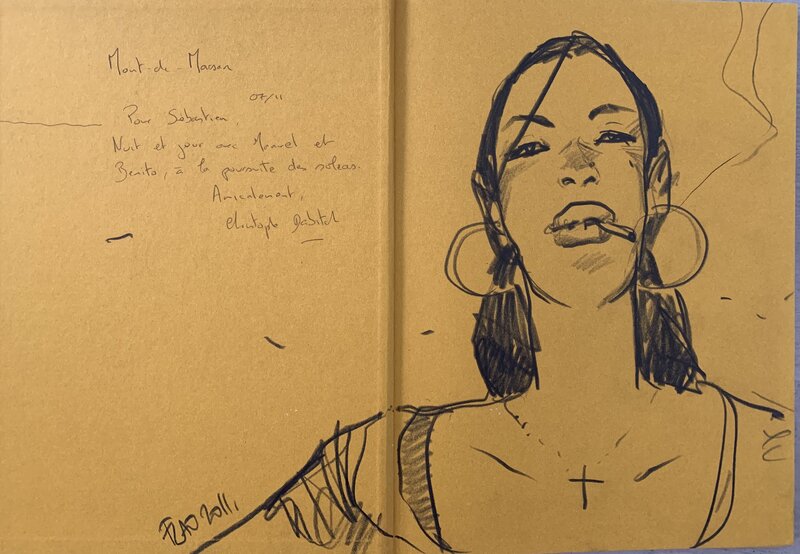 Mont-de-Marsan
07/11
Pour Sébastien,
Nuit et jour avec Manuel et
Benito, à la poursuite des soleas.
Amicalement,
Christophe Dabitch
FLAO 2011.